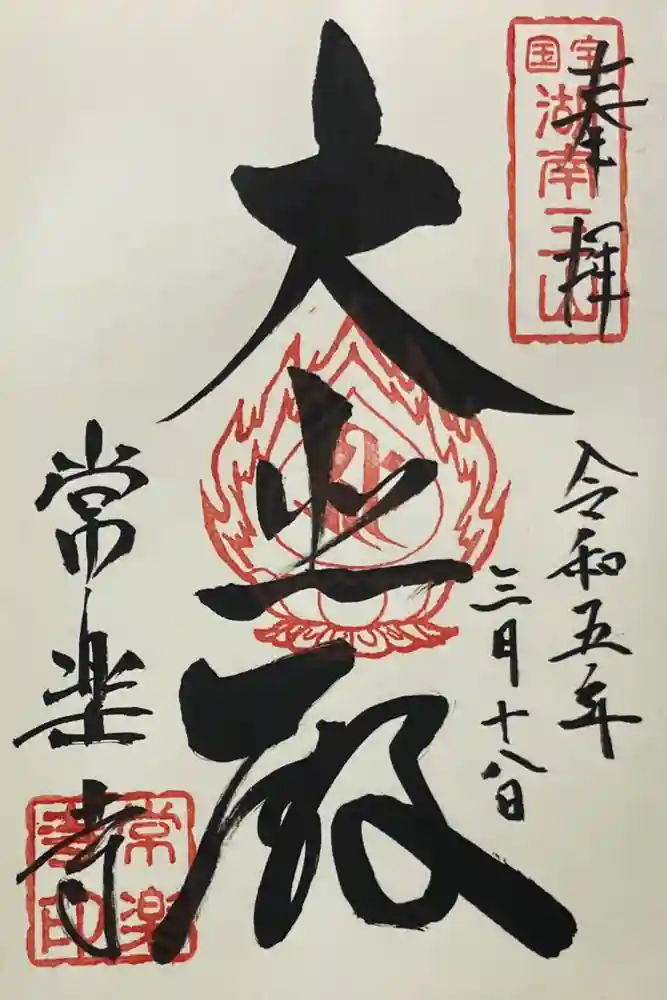 奉拝
国宝
湖南三山
令和五年
三月十八日
大悲殿
常楽寺
常楽
寺印